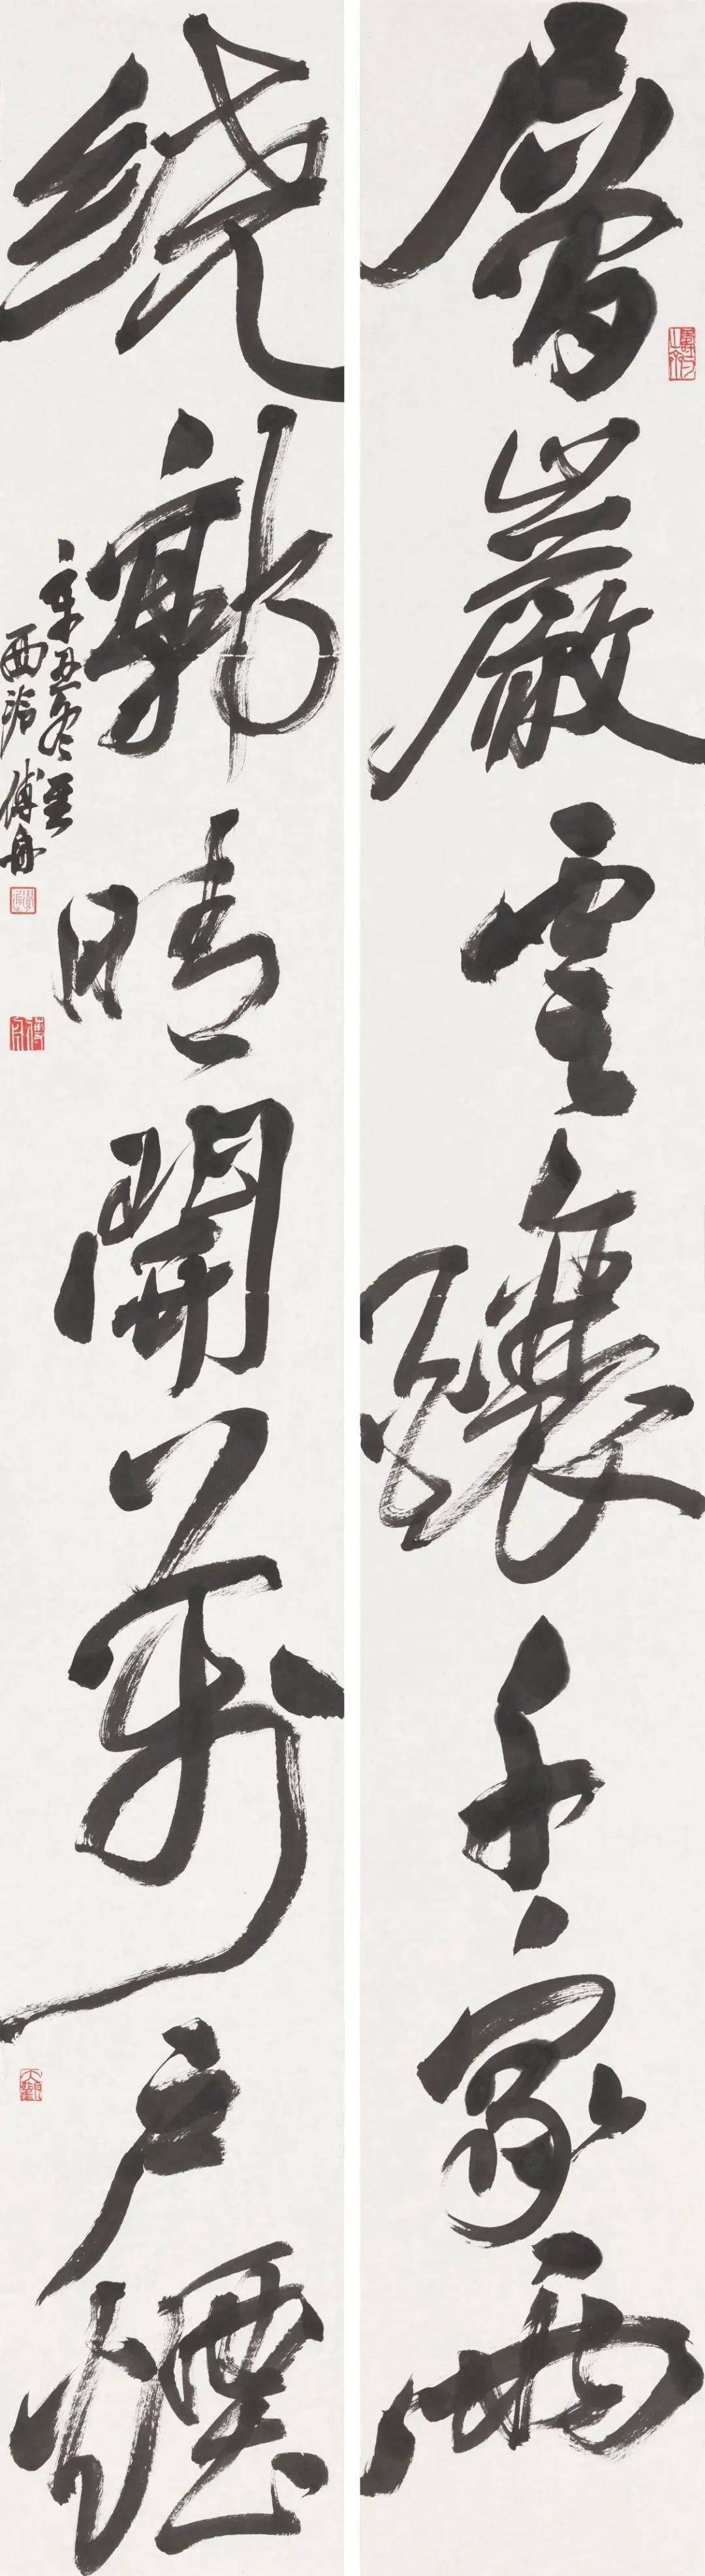 層巖雲釀千家雨
繞郭晴開萬戶煙
辛丑冬至
西泠傅舟